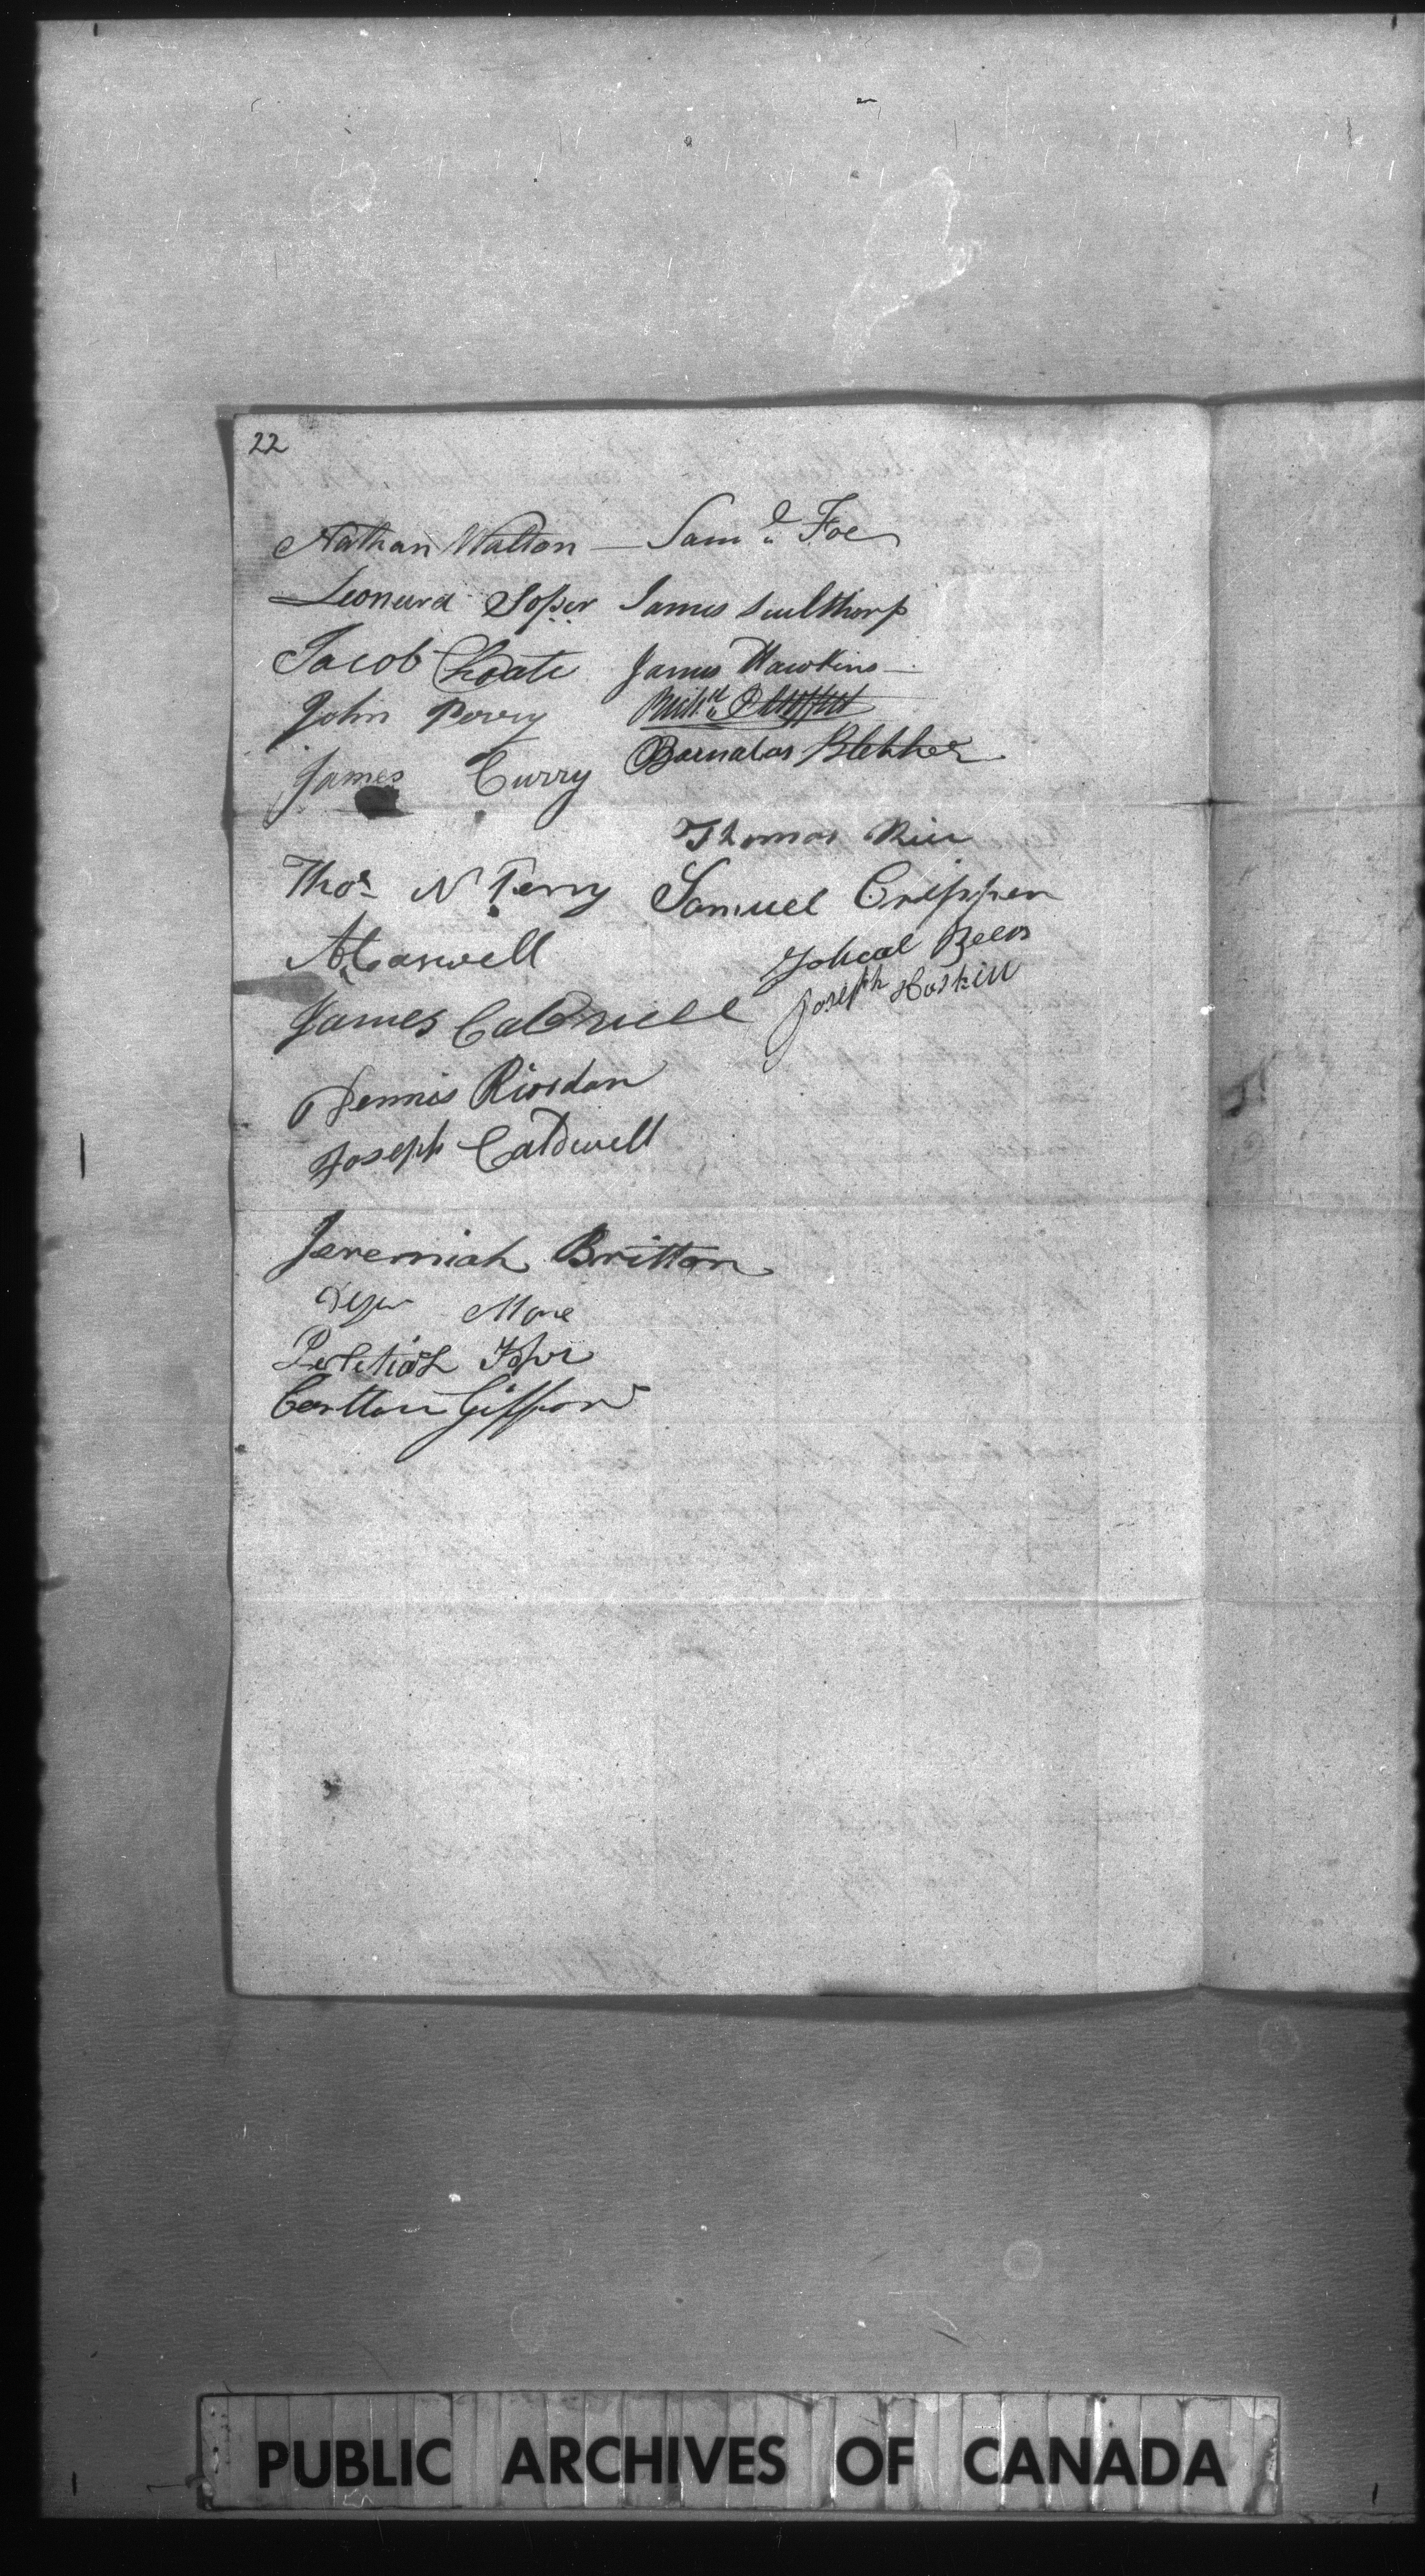 22
Nathan Walton — Saml. Foe
Leonard Soper James Sculthorp
Jacob Choate James Hawkins —
John Perry
James Curry Barnabas Blekker
Thomas
Thos N Perry Samuel Crippen
A Caswell
James Caldwell Joseph Hoskin
Dennis Riordan
Joseph Caldwell
Jeremiah Britton
More
Pelitiah Soper
Carlton Giffon
PUBLIC ARCHIVES OF CANADA